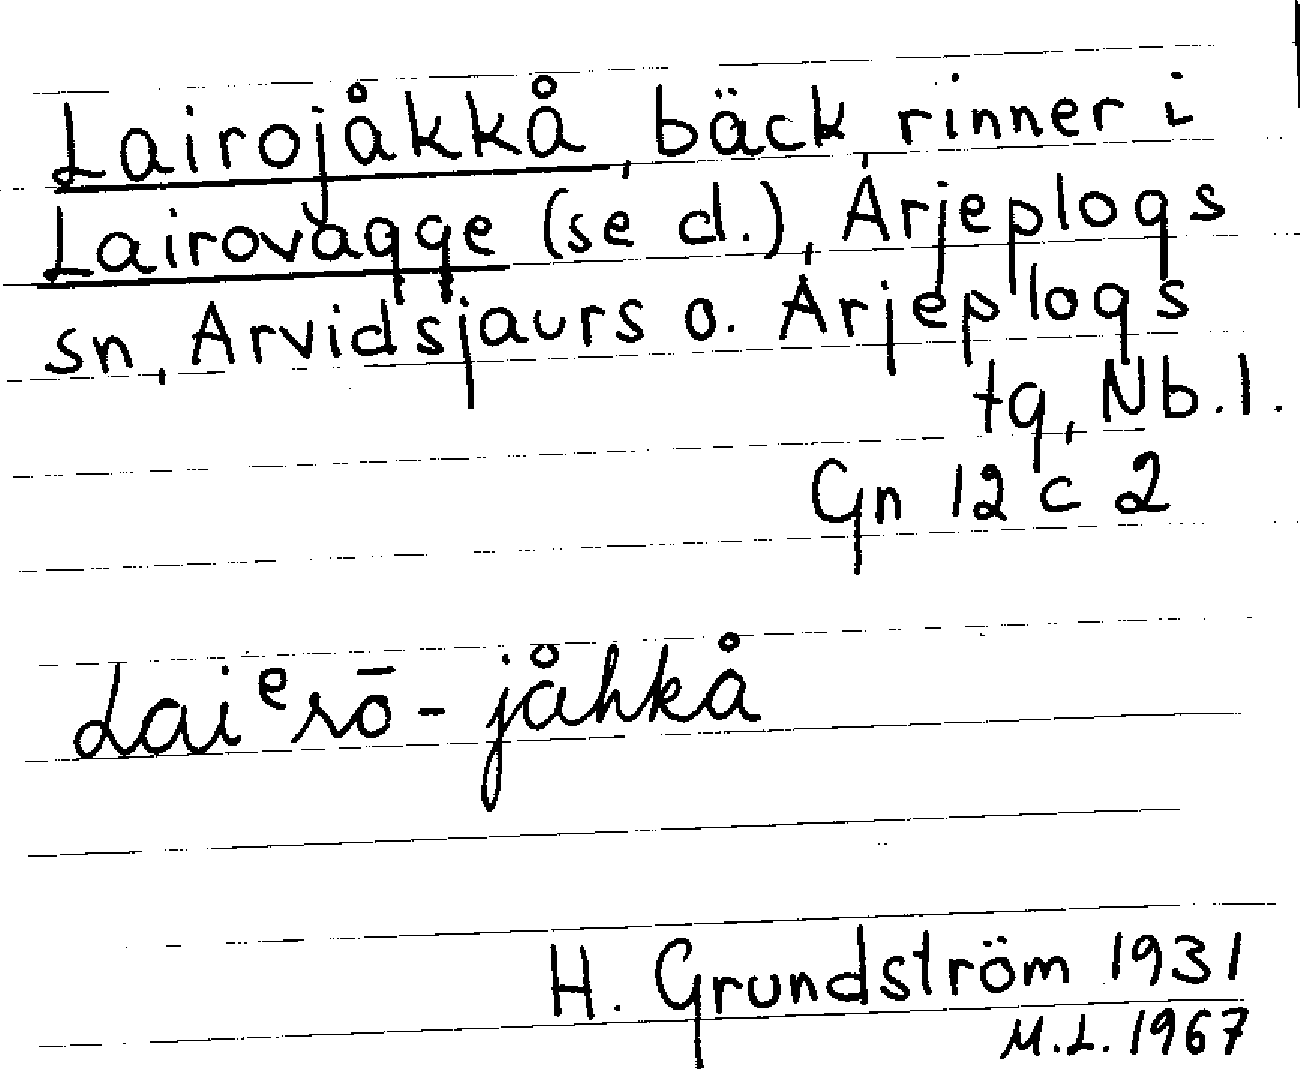 Lairojåkkå, bäck, rinner i
Lairovagge (se d.), Arjeplogs
sn, Arvidsjaurs o. Arjeplogs
tg, Nb. l.
Gn 12 c 2
Laiᵉrō-jåhkå
H. Grundström 1931
M.L. 1967